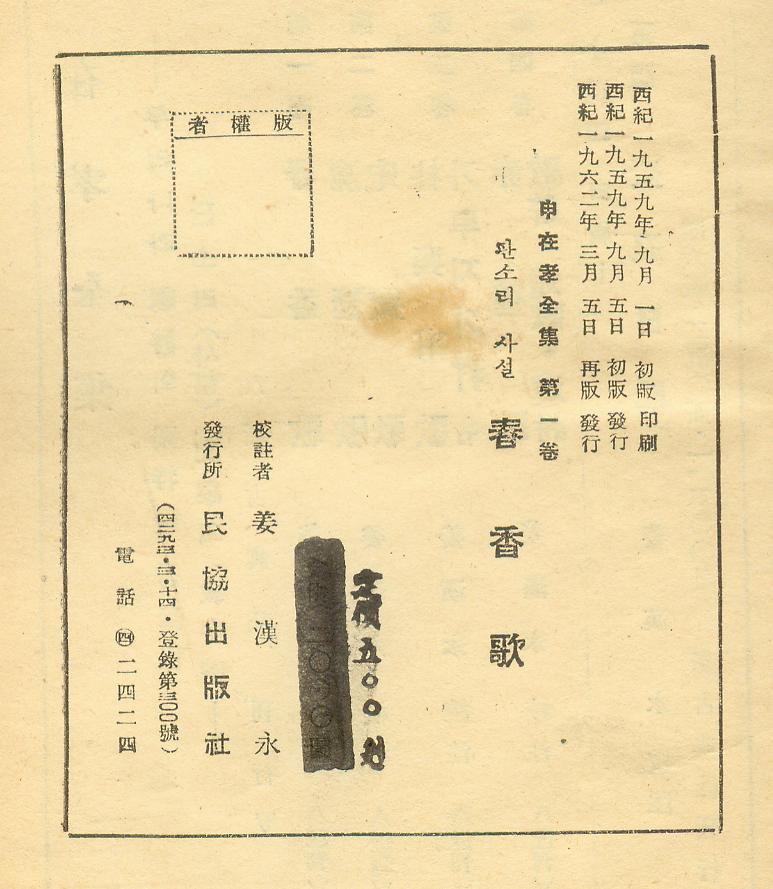 西紀一九五九年九月一日 初版印刷
西紀一九五九年九月五日 初版發行
西紀一九六二年三月五日 再版發行
申在孝全集 第一卷
판소리 사설 春香歌
定價五〇〇원
校註者 姜漢永
發行所 民協出版社
(四二九三·三·十四·登錄第三〇〇號)
電話 ㊃ 二四二四
版權者